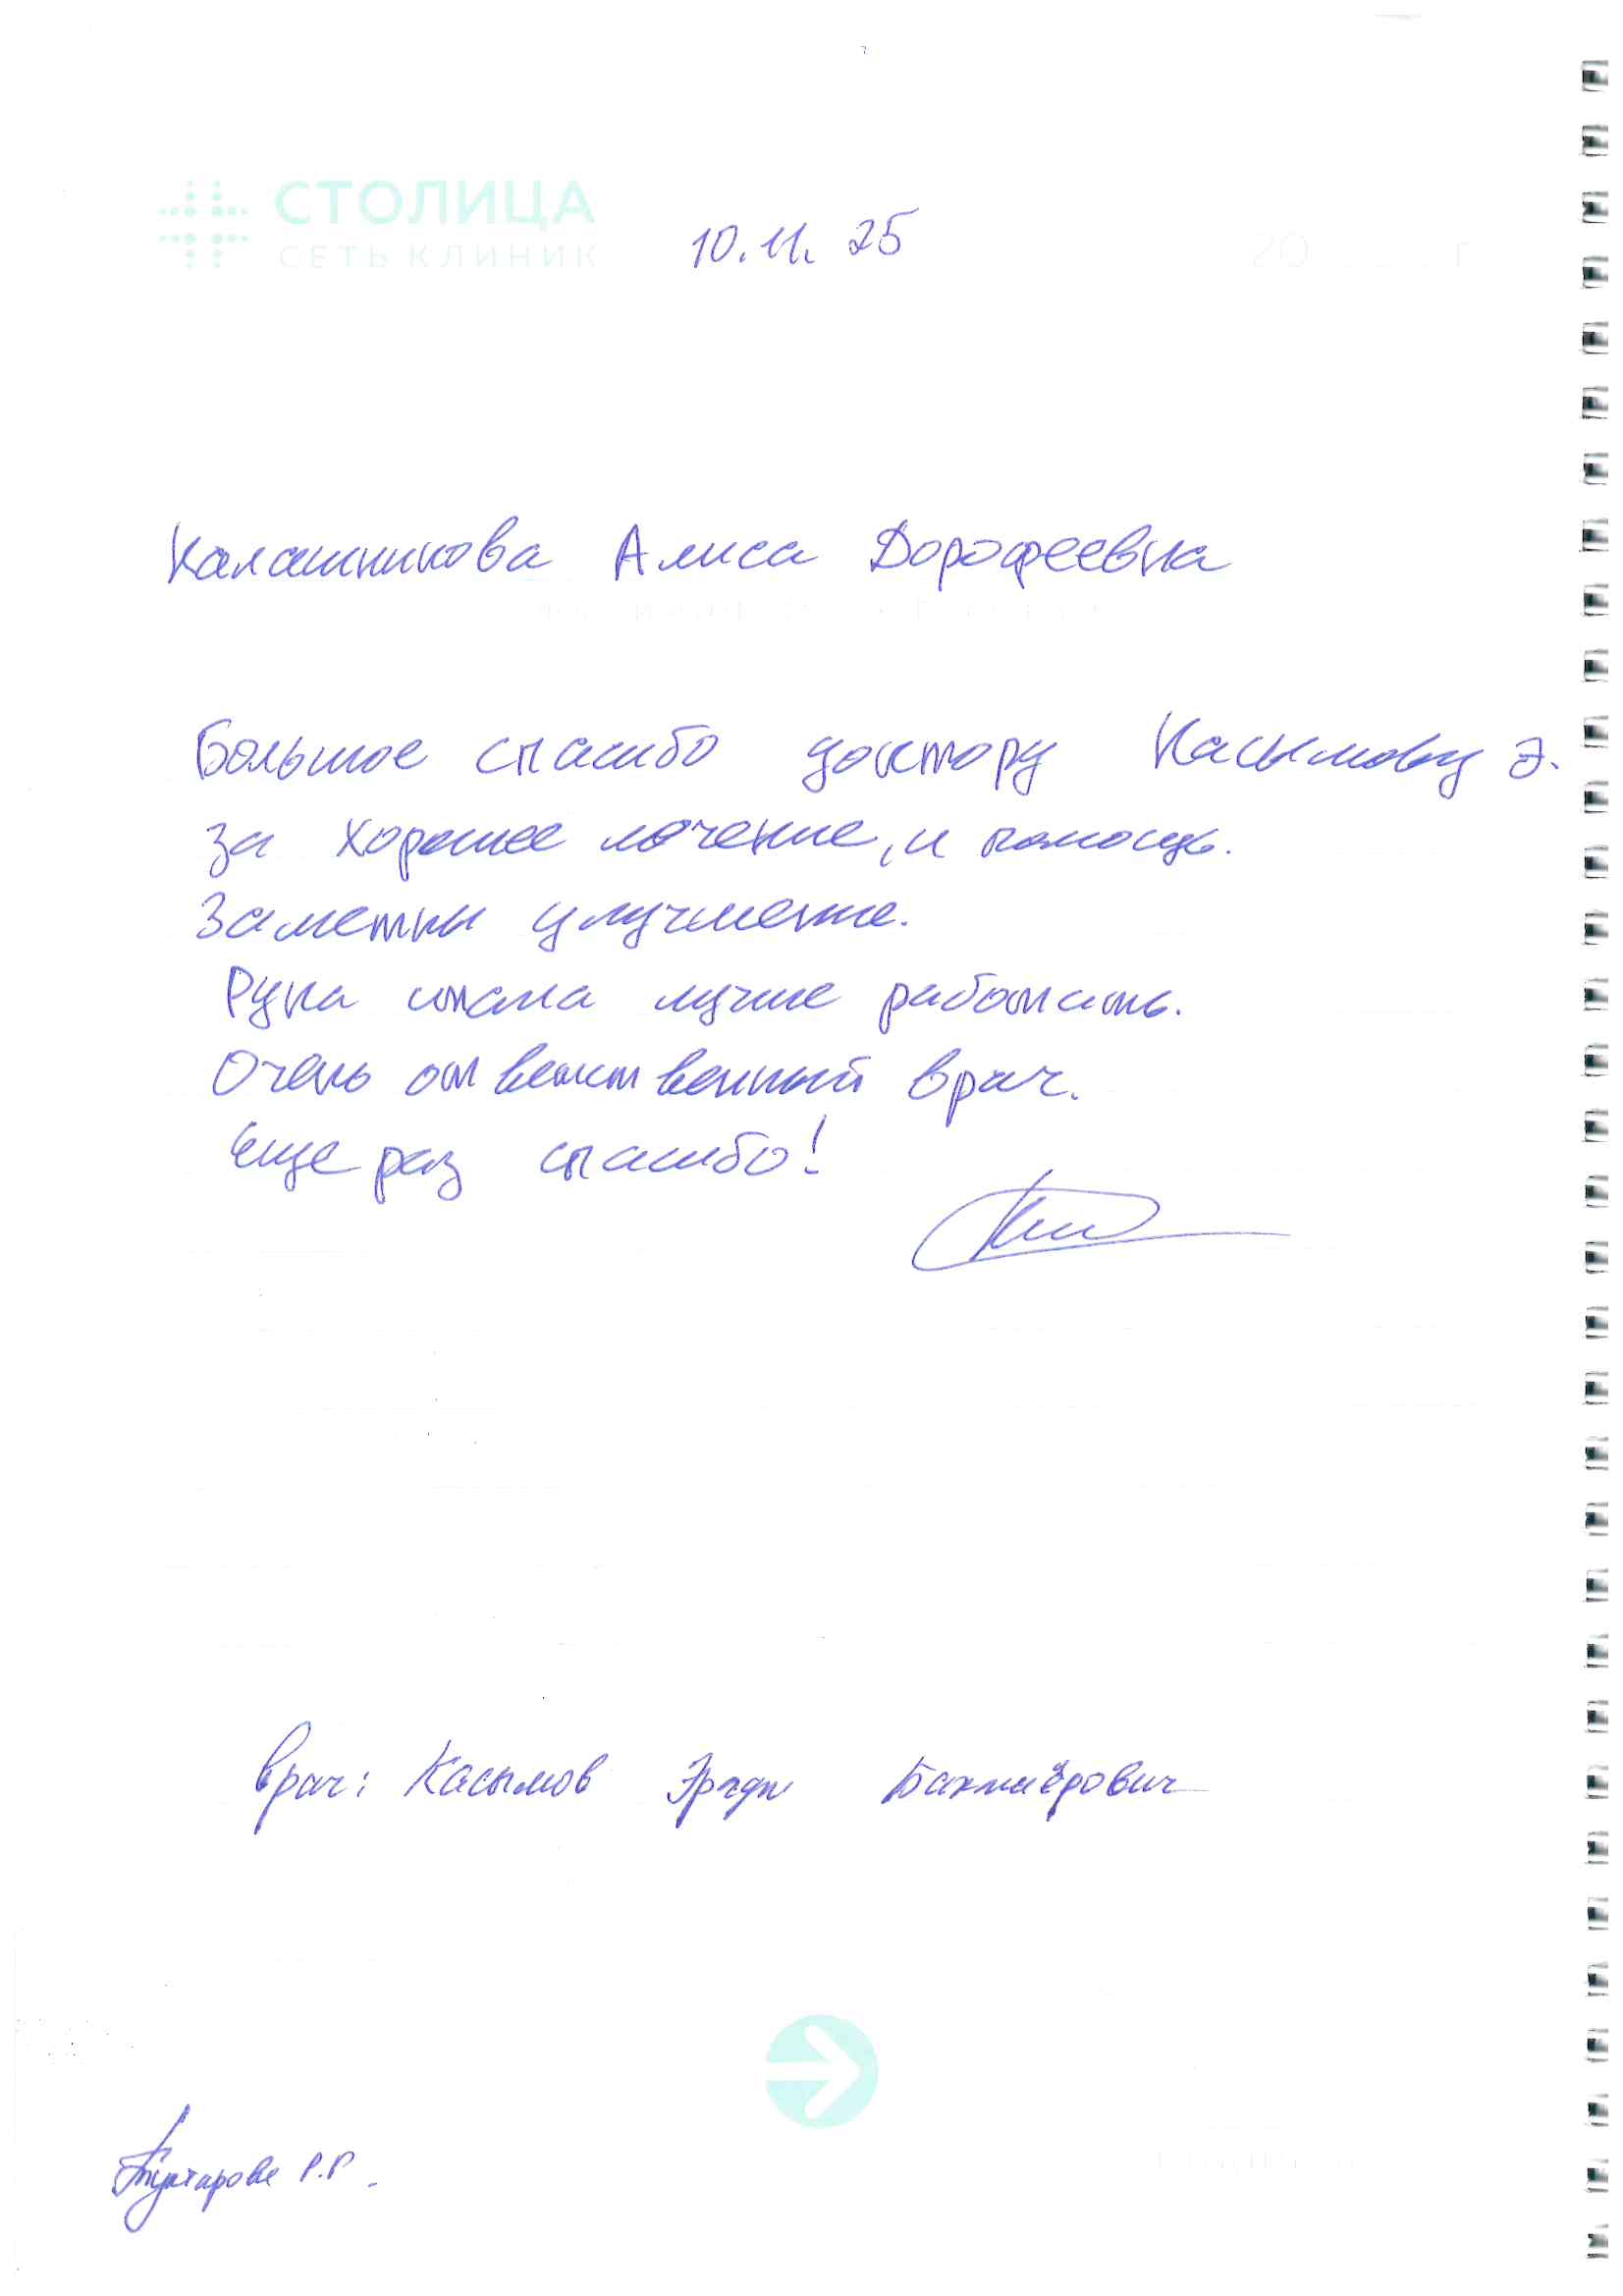 СТОЛИЦА
СЕТЬ КЛИНИК
10.11.25
Калашникова Алиса Дорофеевна
Большое спасибо доктору Касымову Э.
за хорошее лечение, и помощь.
Заметны улучшение.
Рука стала лучше работать.
Очень ответственный врач.
Еще раз спасибо!
врач: Касымов Бахтиёрович
Р.Р.